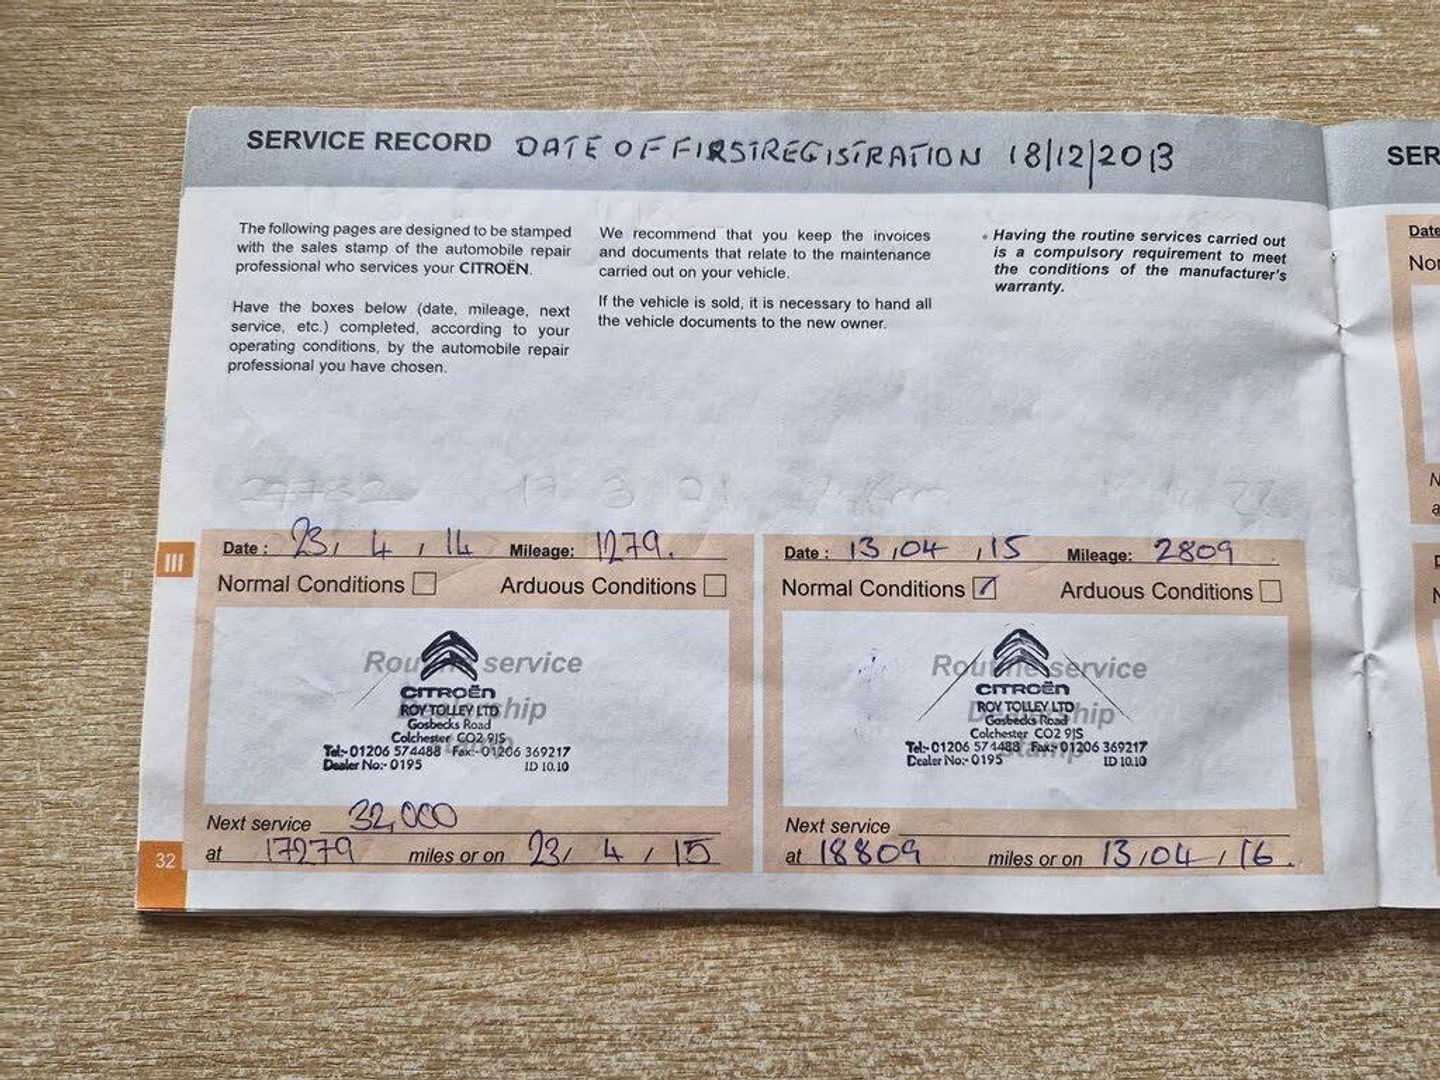 SERVICE RECORD DATE OF FIRST REGISTRATION 18/12/2013
The following pages are designed to be stamped
with the sales stamp of the automobile repair
professional who services your CITROËN.
Have the boxes below (date, mileage, next
service, etc.) completed, according to your
operating conditions, by the automobile repair
professional you have chosen.
We recommend that you keep the invoices
and documents that relate to the maintenance
carried out on your vehicle.
If the vehicle is sold, it is necessary to hand all
the vehicle documents to the new owner.
• Having the routine services carried out
is a compulsory requirement to meet
the conditions of the manufacturer's
warranty.
III
Date : 23, 4, 14 Mileage: 1279.
Normal Conditions Arduous Conditions
Routine service
CITROËN
ROY TOLLEY LTD
Gosbecks Road
Colchester CO2 9JS
Tel:- 01206 574488 Fax:- 01206 369217
Dealer No:- 0195 ID 10.10
Next service 32,000
at 17279 miles or on 23, 4, 15
Date : 13,04,15 Mileage: 2809
Normal Conditions Arduous Conditions
Routine service
Dealership
stamp
CITROËN
ROY TOLLEY LTD
Gosbecks Road
Colchester CO2 9JS
Tel:- 01206 574488 Fax:- 01206 369217
Dealer No:- 0195 ID 10.10
Next service
at 18809 miles or on 13,04,16.
32
SER
Date